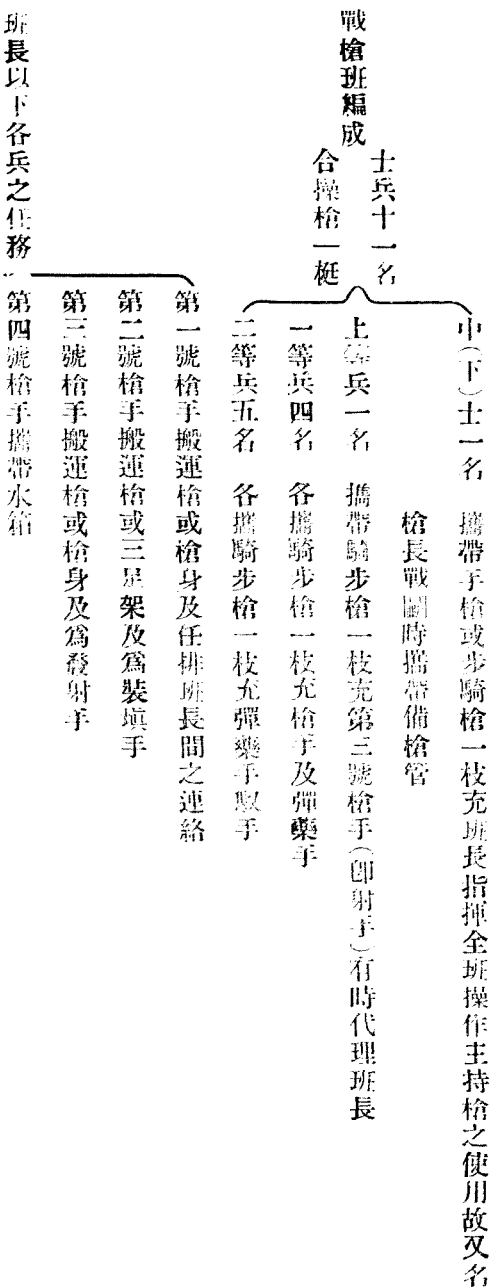 戰槍班編成
士兵十一名
合操槍一梃
中(下)士一名　攜帶手槍或步騎槍一枝充班長指揮全班操作主持槍之使用故又名
槍長戰鬭時攜帶備槍管
上等兵一名　攜帶騎步槍一枝充第三號槍手(卽射手)有時代理班長
一等兵四名　各攜騎步槍一枝充槍手及彈藥手
二等兵五名　各攜騎步槍一枝充彈藥手馭手
班長以下各兵之任務
第一號槍手搬運槍或槍身及任排班長間之連絡
第二號槍手搬運槍或三足架及爲裝塡手
第三號槍手搬運槍或槍身及爲發射手
第四號槍手攜帶水箱